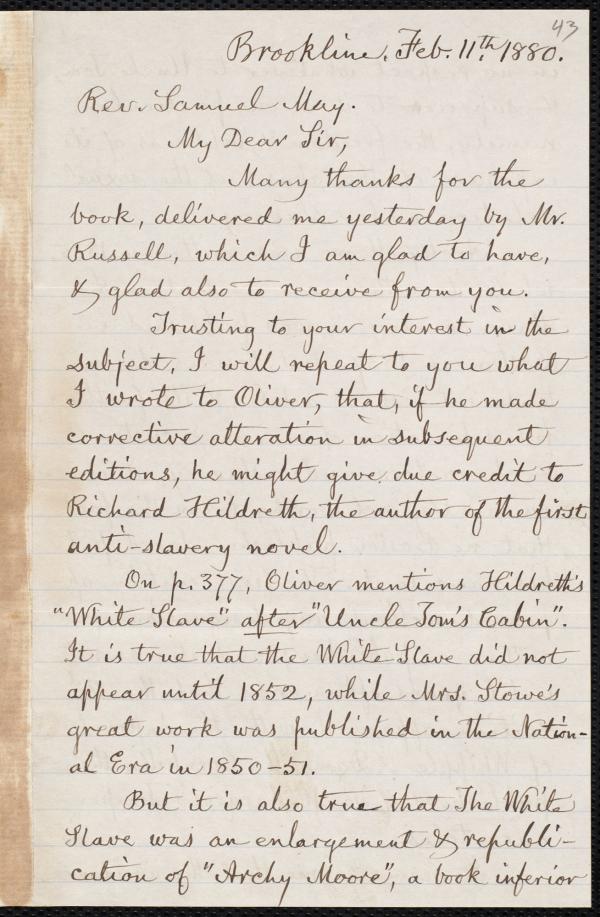 43
Brookline, Feb. 11th 1880.
Rev. Samuel May.
My Dear Sir,
Many thanks for the
book, delivered me yesterday by Mr.
Russell, which I am glad to have,
& glad also to receive from you.
Trusting to your interest in the
subject, I will repeat to you what
I wrote to Oliver, that, if he made
corrective alteration in subsequent
editions, he might give due credit to
Richard Hildreth, the author of the first
anti-slavery novel.
On p. 377, Oliver mentions Hildreth's
"White Slave" after "Uncle Tom's Cabin".
It is true that the White Slave did not
appear until 1852, while Mrs. Stowe's
great work was published in the Nation-
al Era in 1850-51.
But it is also true that The White
Slave was an enlargement & republi-
cation of "Archy Moore", a book inferior